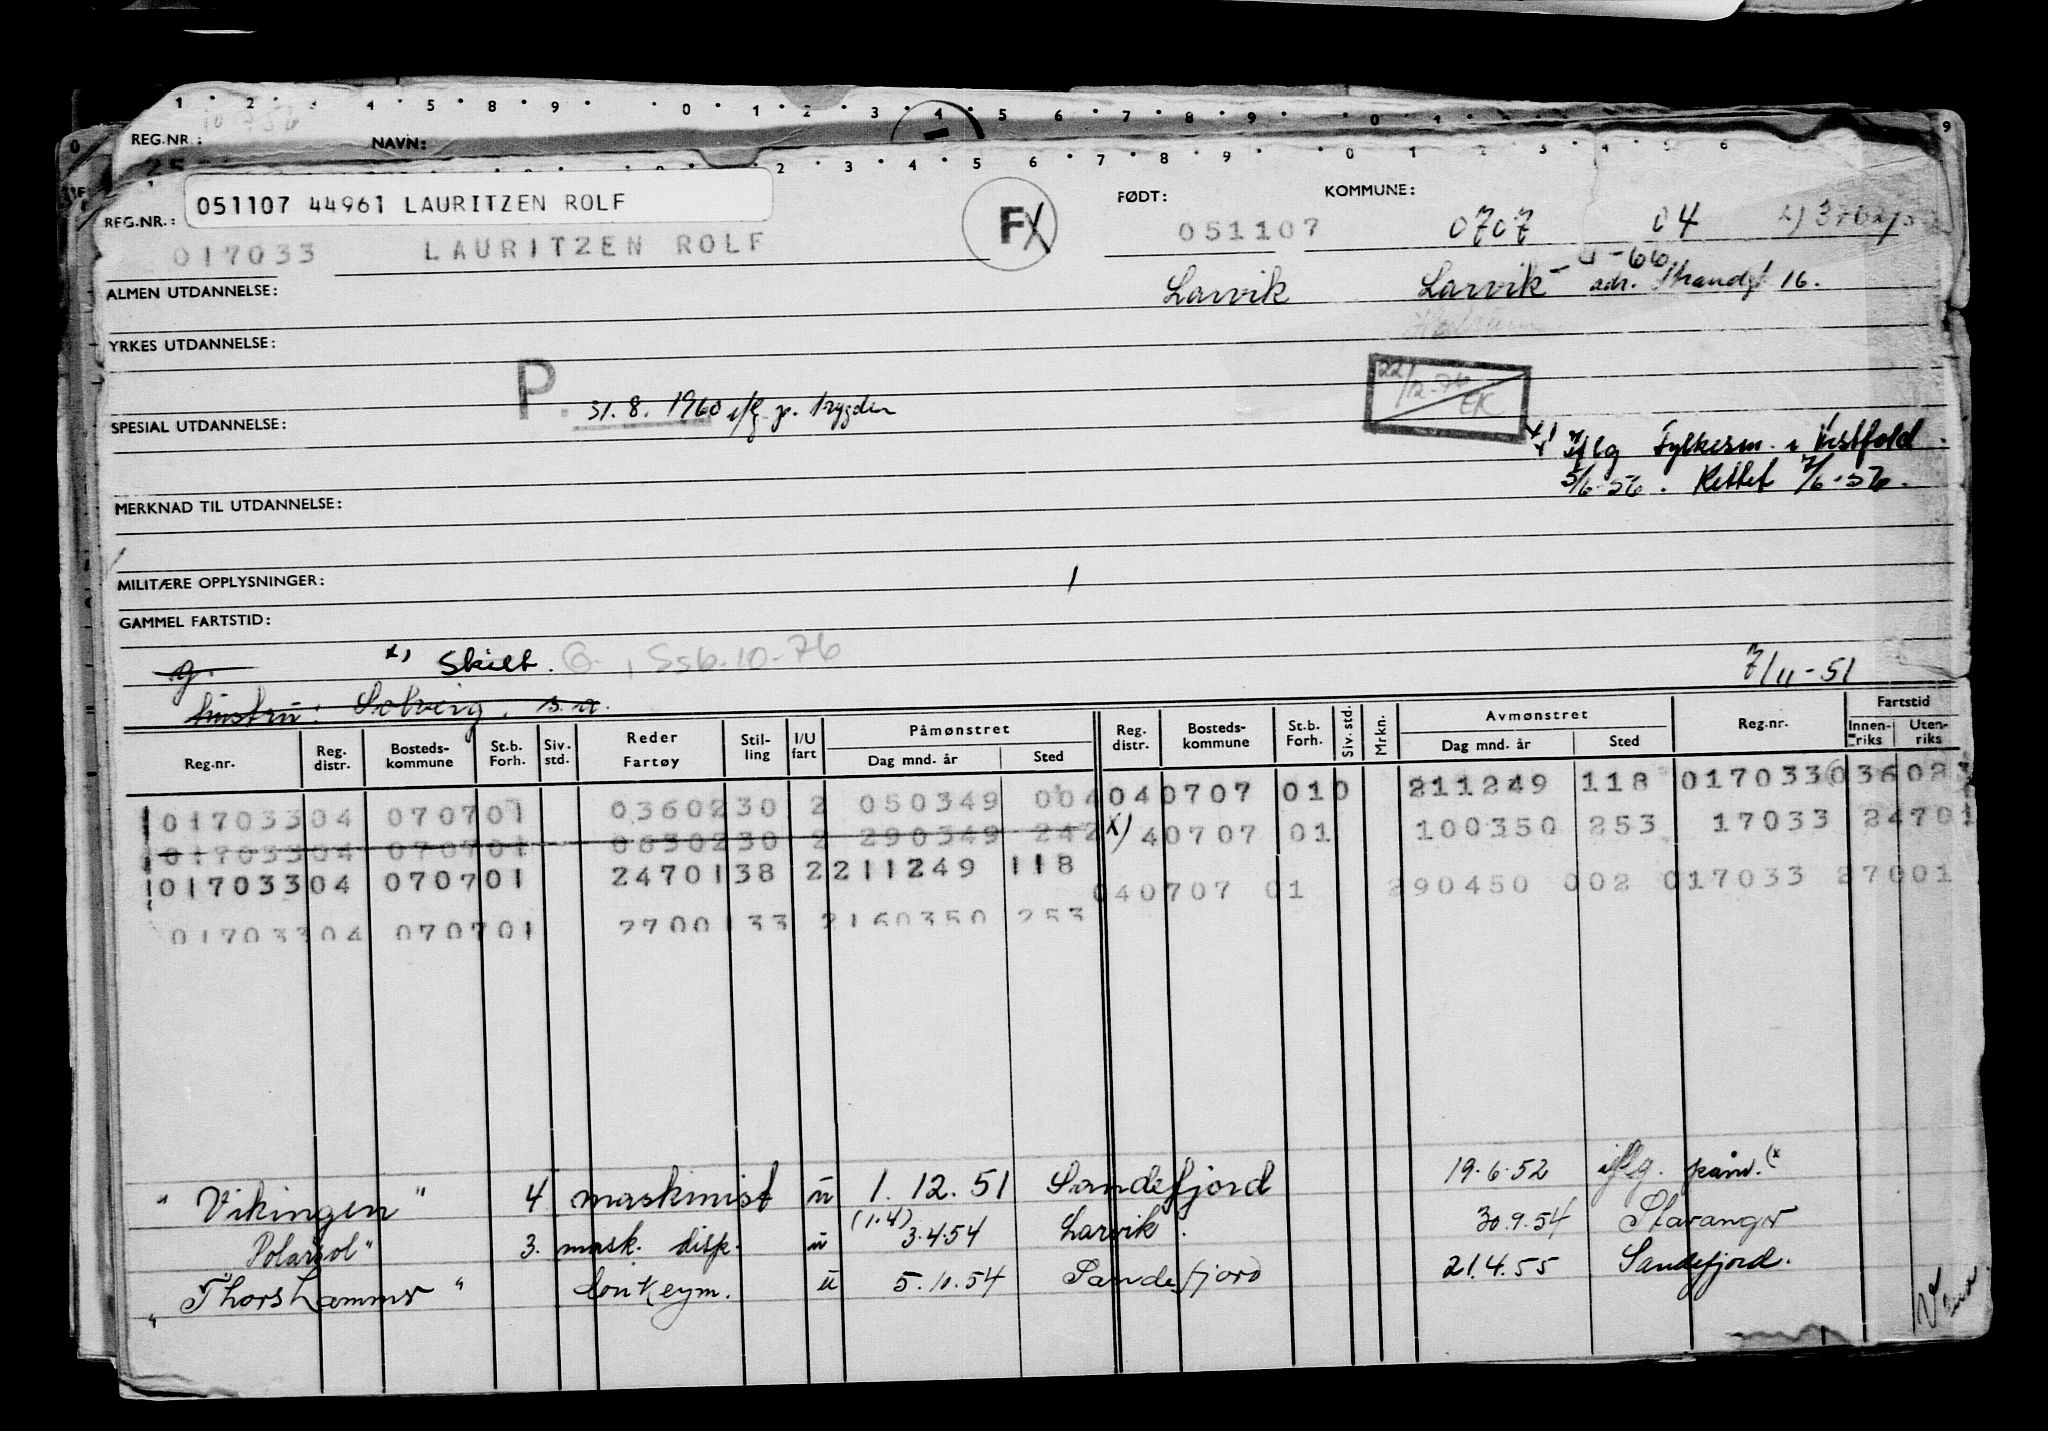 1 2 3 4 5 8 9 0 1 2 3 4 5 6 7 8 9 0 1
REG.NR.: NAVN:
2 3 4 5 6 7 8 9 0 1 2 3 4 5 6
051107 44961 LAURITZEN ROLF
REG.NR.: FX FØDT: KOMMUNE:
017033 LAURITZEN ROLF 051107 0707 04
4-66
ALMEN UTDANNELSE: Larvik Larvik - adr. Strandgt 16.
YRKES UTDANNELSE:
P. 31.8.1960 iflg. p. trygden 22/12-76 EK
SPESIAL UTDANNELSE:
x) Iflg Fylkesm. i Vestfold.
5/6-56. Rettet 7/6-56.
MERKNAD TIL UTDANNELSE:
MILITÆRE OPPLYSNINGER:
GAMMEL FARTSTID:
g. x) Skilt. G., Ssb.10-76 7/11-51
hustru: Solveig. s.a.
Reg.nr. Reg. distr. Bosteds-kommune St.b. Forh. Siv. std. Reder Fartøy Stil-ling I/U fart Påmønstret Dag mnd. år Sted Reg. distr. Bosteds-kommune St.b. Forh. Siv. std. Mrkn. Avmønstret Dag mnd. år Sted Reg.nr. Fartstid Innen-riks Uten-riks
017033 04 0707 01 03602 30 2 050349 004 04 0707 01 0 211249 118 017033 03602
017033 04 0707 01 06302 30 2 290349 242 x) 4 0707 01 100350 253 17033 24701
017033 04 0707 01 24701 38 2 211249 118
04 0707 01 290450 002 017033 27001
017033 04 0707 01 27001 33 2 160350 253
"Vikingen" 4 maskinist u 1.12.51 Sandefjord 19.6.52 iflg.
Polarsol" 3. mask. disp. u (1.4) 3.4.54 Larvik. 30.9.54 Stavanger
"Thorshammer" Donkeym. u 5.10.54 Sandefjord 21.4.55 Sandefjord.